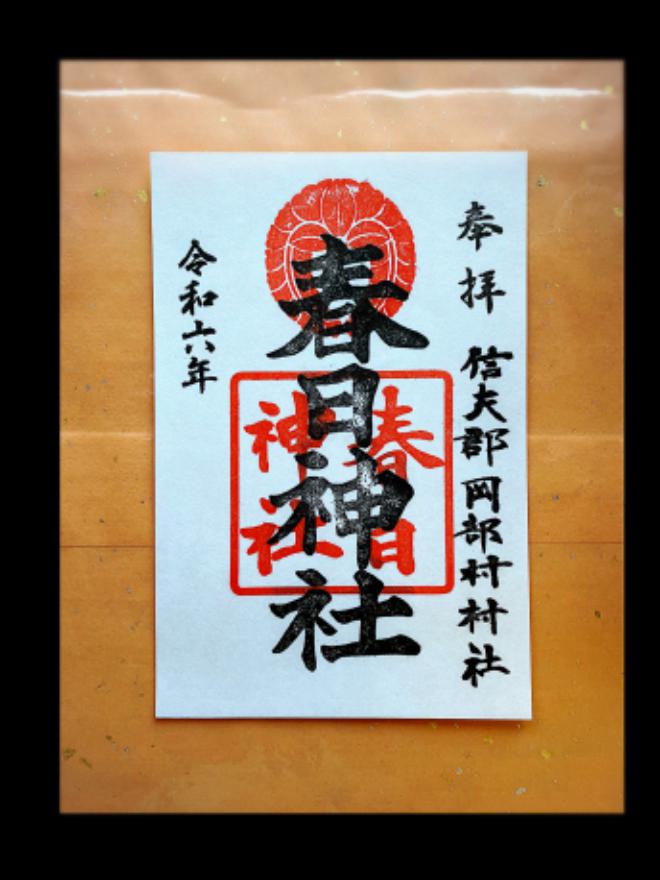 奉拝　信夫郡岡部村村社
春日神社
春日
神社
令和六年